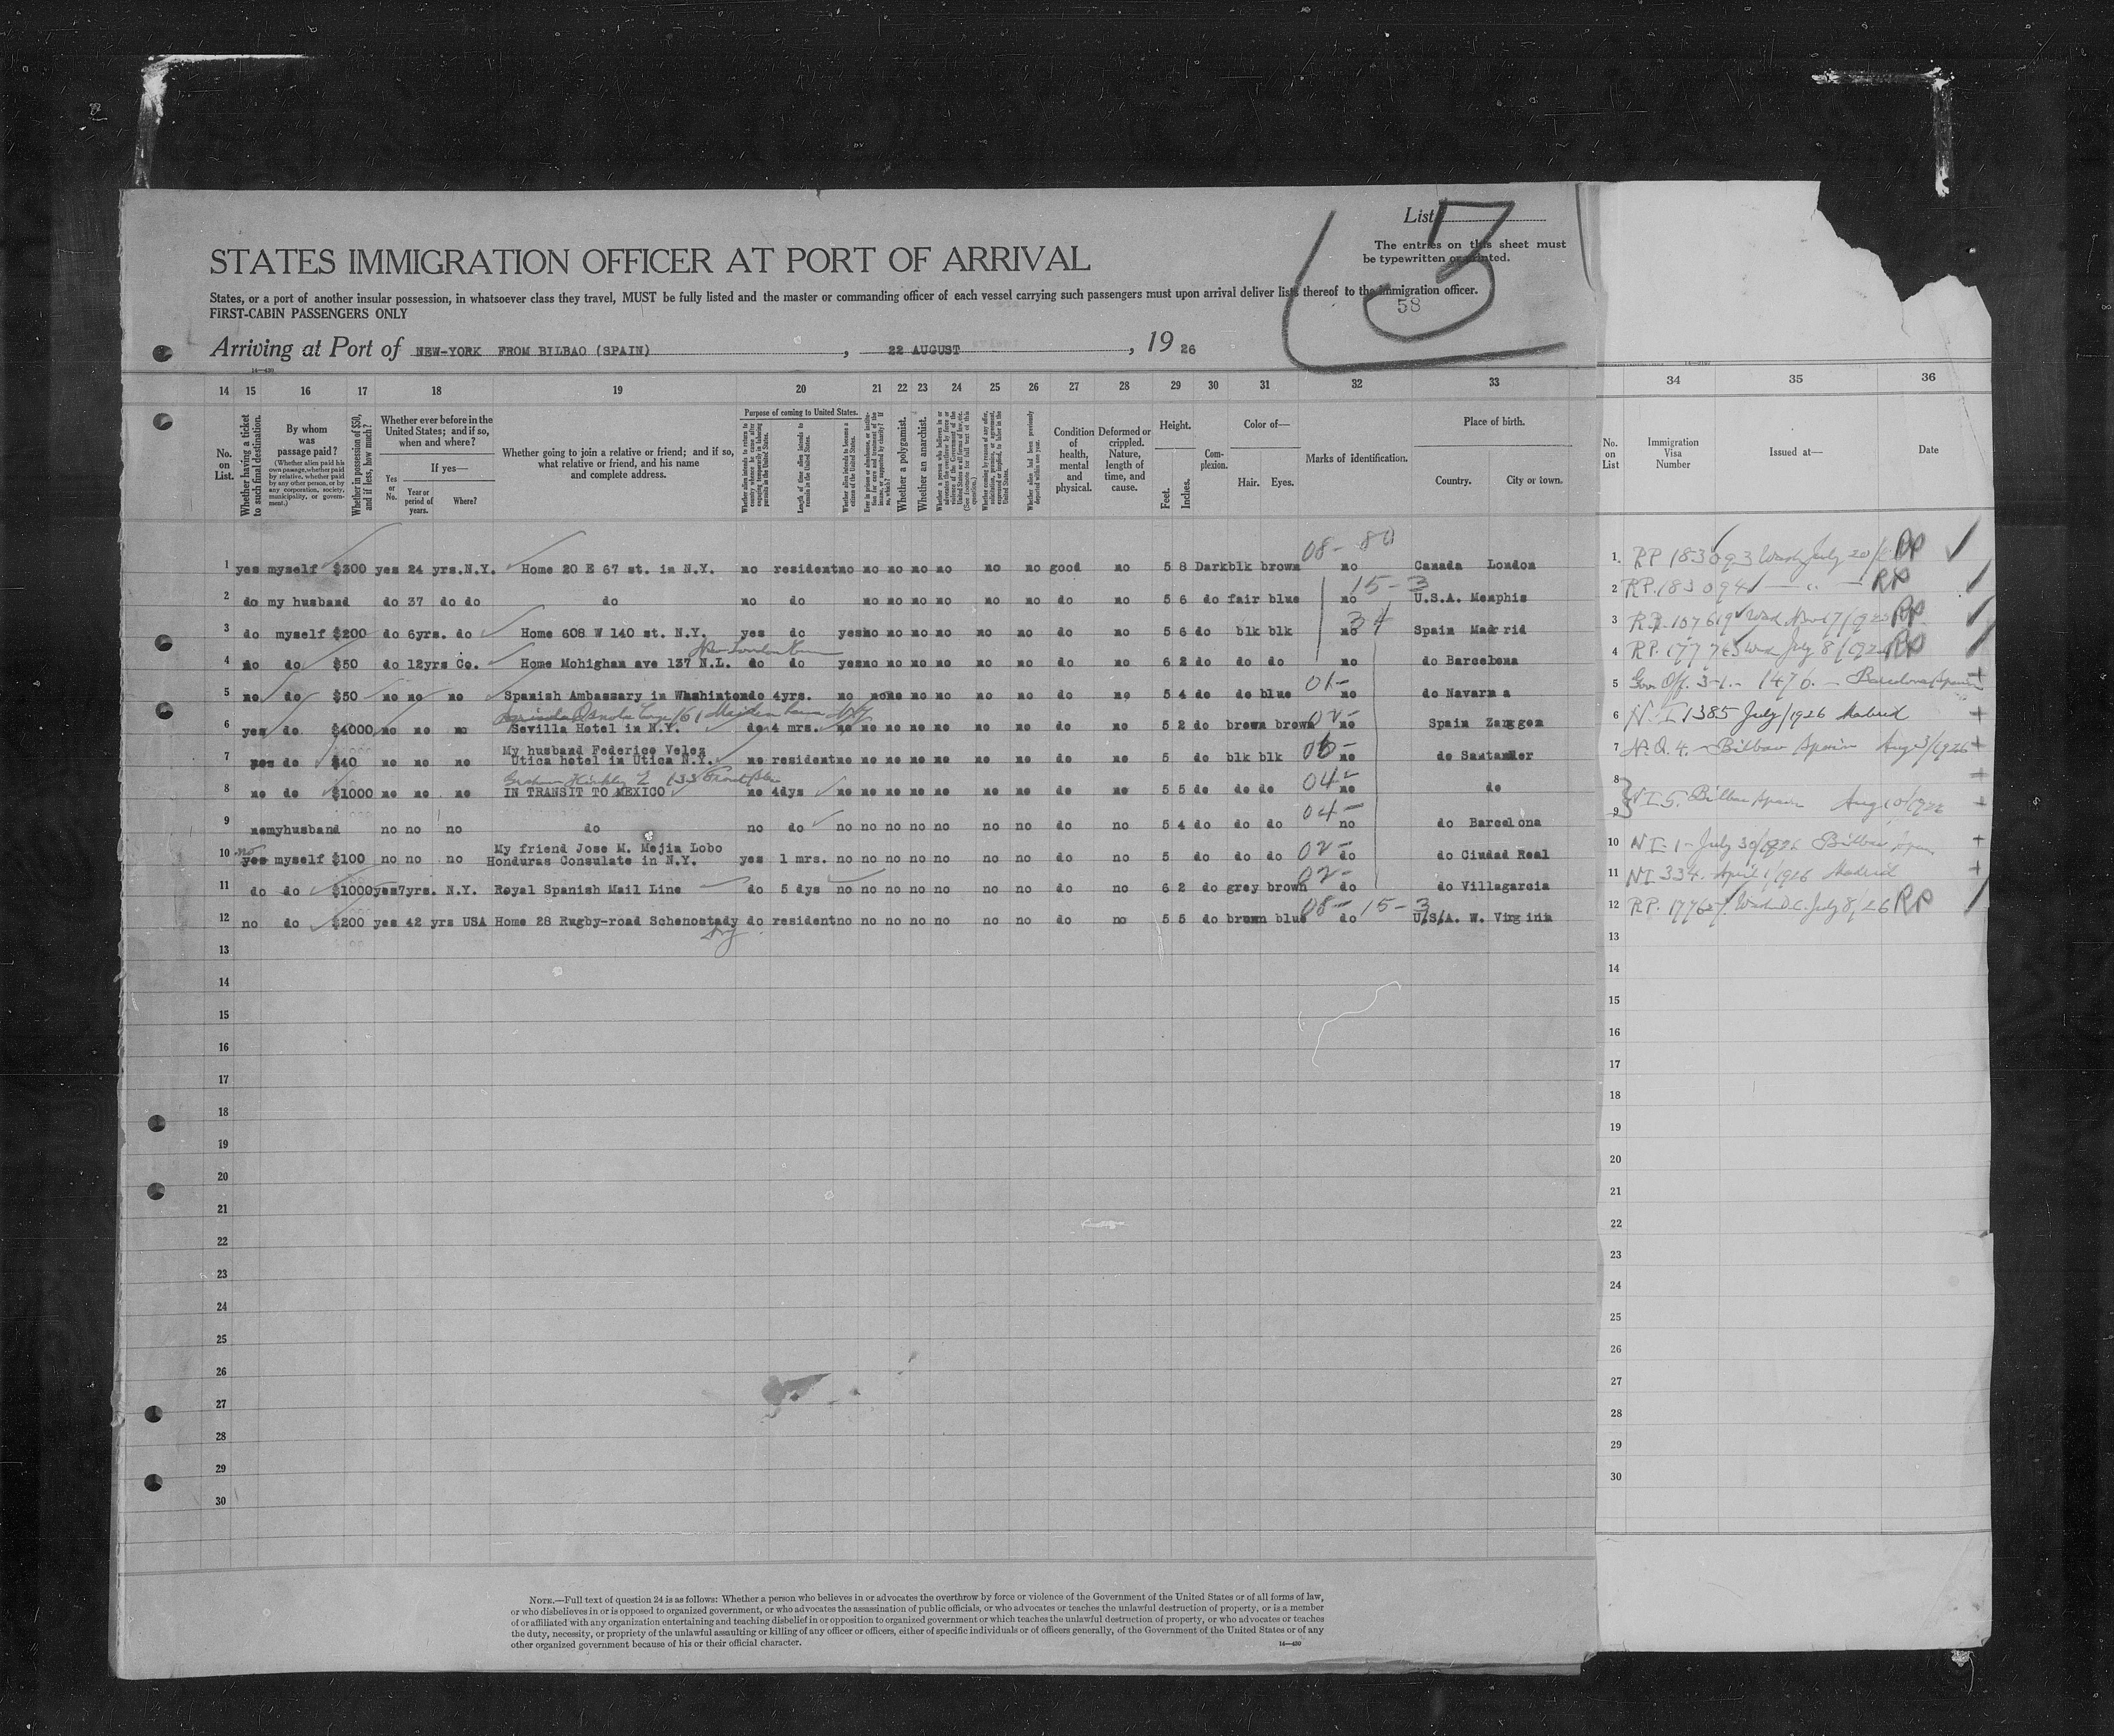 List
The entries on this sheet must
be typewritten or printed.
3
58
STATES IMMIGRATION OFFICER AT PORT OF ARRIVAL
States, or a port of another insular possession, in whatsoever class they travel, MUST be fully listed and the master or commanding officer of each vessel carrying such passengers must upon arrival deliver lists thereof to the immigration officer.
FIRST-CABIN PASSENGERS ONLY
Arriving at Port of NEW-YORK FROM BILBAO (SPAIN), 22 AUGUST, 19 26
14—430
14 15 16 17 18 19 20 21 22 23 24 25 26 27 28 29 30 31 32 33 34 35 36
No. on List.
Whether having a ticket to such final destination.
By whom was passage paid?
(Whether alien paid his own passage, whether paid by relative, whether paid by any other person, or by any corporation, society, municipality, or government.)
Whether in possession of $50, and if less, how much?
Whether ever before in the United States; and if so, when and where?
If yes—
Yes or No.
Year or period of years.
Where?
Whether going to join a relative or friend; and if so, what relative or friend, and his name and complete address.
Purpose of coming to United States.
Length of time alien intends to remain in the United States.
Whether alien intends to become a citizen of the United States.
Whether a polygamist.
Whether an anarchist.
Condition of health, mental and physical.
Deformed or crippled. Nature, length of time, and cause.
Height.
Feet.
Inches.
Complexion.
Color of—
Hair. Eyes.
Marks of identification.
Place of birth.
Country. City or town.
No. on List
Immigration Visa Number
Issued at—
Date
08- 80
1 yes myself $300 yes 24 yrs.N.Y. Home 20 E 67 st. in N.Y. no resident no no no no no no no good no 5 8 Dark blk brown no Canada London 1. RP 183093 Wash July 20/ RP
15-3
2 do my husband do 37 do do do no do no no no no no no do no 5 6 do fair blue no U.S.A. Memphis 2 RP. 183094 RP
34
3 do myself $200 do 6yrs. do Home 608 W 140 st. N.Y. yes do yes no no no no no no do no 5 6 do blk blk no Spain Madrid 3 RP. 107619 RP
4 no do $50 do 12yrs Co. Home Mohighan ave 137 N.L. do do yes no no no no no no do no 6 2 do do do no do Barcelona 4 RP. 177765 July 8/ RP
01-
5 no do $50 no no no Spanish Ambassary in Washinton do 4yrs. no none no no no no do no 5 4 do do blue no do Navarra 5 Gov Off. 3-1.- 1470. - Barcelona Spain
6 yes do $4000 no no no Sevilla Hotel in N.Y. do 4 mrs. no no no no no no no do no 5 2 do brown brown 02- no Spain Zanggoz 6 N-I 1385 July/1926 Madrid
My husband Federico Velez
7 yes do $40 no no no Utica hotel in Utica N.Y. no resident no no no no no no no do no 5 do blk blk no do Santander 7 Bilbao Spain Aug 3/1926
133 Front
04-
8 no do $1000 no no no IN TRANSIT TO MEXICO no 4dys no no no no no no no do no 5 5 do do do no do 8
04-
9 no myhusband no no no do no do no no no no no no no do no 5 4 do do do no do Barcelona 9 NI 5. Bilbao Spain Aug 10/1926
My friend Jose M. Mejia Lobo
10 no yes myself $100 no no no Honduras Consulate in N.Y. yes 1 mrs. no no no no no no no do no 5 do do do 02- do do Ciudad Real 10 NI-1- July 30/1926 Bilbao Spain
02-
11 do do $1000 yes 7yrs. N.Y. Royal Spanish Mail Line do 5 dys no no no no no no no do no 6 2 do grey brown do do Villagarcia 11 NI 334. April 1/1926 Madrid
08- 15-3
12 no do $200 yes 42 yrs USA Home 28 Rugby-road Schenostady do resident no no no no no no no do no 5 5 do brown blue do U.S.A. W. Virginia 12 RP. Wash D.C. July 8/26 RP
13 13
14 14
15 15
16 16
17 17
18 18
19 19
20 20
21 21
22 22
23 23
24 24
25 25
26 26
27 27
28 28
29 29
30 30
NOTE.—Full text of question 24 is as follows: Whether a person who believes in or advocates the overthrow by force or violence of the Government of the United States or of all forms of law,
or who disbelieves in or is opposed to organized government, or who advocates the assassination of public officials, or who advocates or teaches the unlawful destruction of property, or is a member
of or affiliated with any organization entertaining and teaching disbelief in or opposition to organized government or which teaches the unlawful destruction of property, or who advocates or teaches
the duty, necessity, or propriety of the unlawful assaulting or killing of any officer or officers, either of specific individuals or of officers generally, of the Government of the United States or of any
other organized government because of his or their official character.
14—430